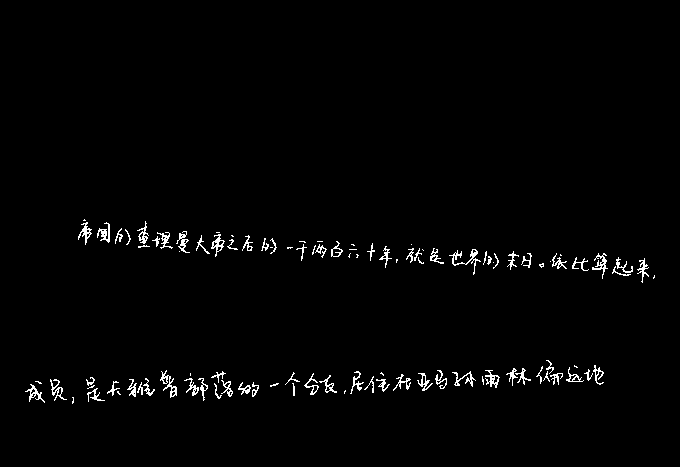 帝国的查理曼大帝之后的一千两百六十年,就是世界的末日。依此算起来,
成员,是卡雅普部落的一个分支,居住在亚马孙雨林偏远地